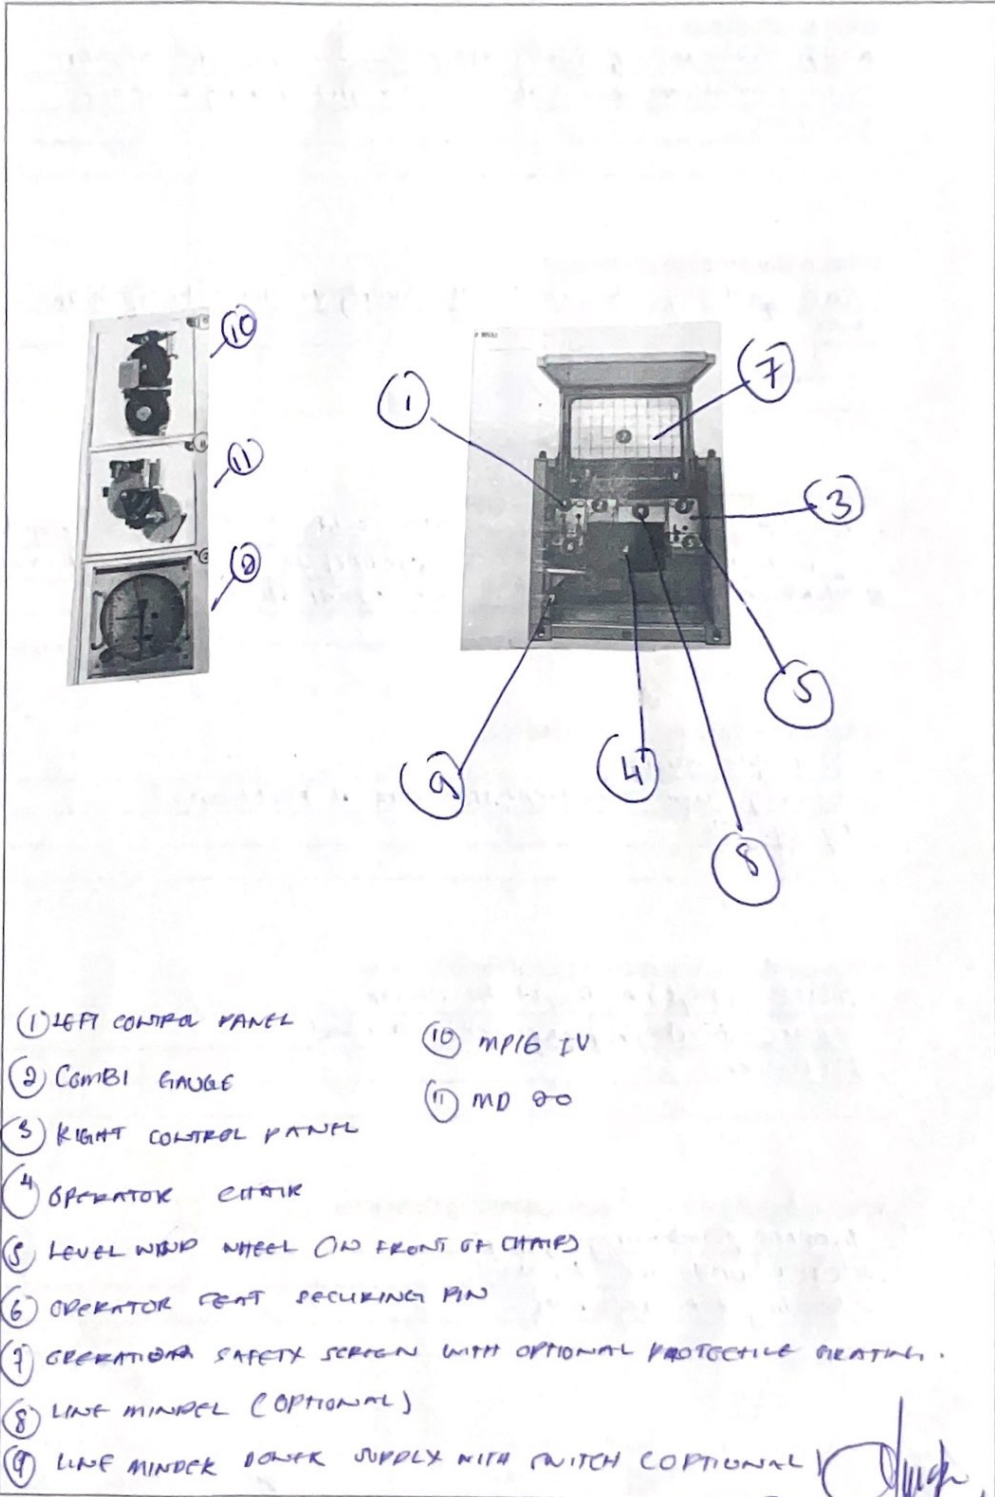 10
11
2
1
7
3
5
9
4
8
① LEFT CONTROL PANEL
② COMBI GAUGE
③ RIGHT CONTROL PANEL
④ OPERATOR CHAIR
⑤ LEVEL WIND WHEEL (IN FRONT OF CHAIR)
⑥ OPERATOR SEAT SECURING PIN
⑦ OPERATIONAL SAFETY SCREEN WITH OPTIONAL PROTECTILE GRATING.
⑧ LINE MINDEL (OPTIONAL)
⑨ LINE MINDER POWER SUPPLY WITH SWITCH (OPTIONAL)
⑩ MPIG IV
⑪ MD 20